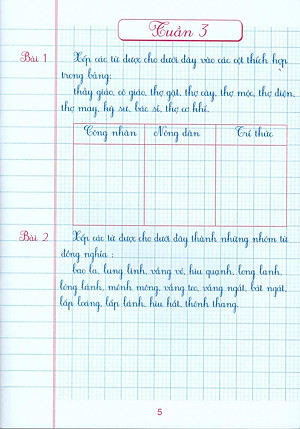 Tuần 3
Bài 1 Xếp các từ được cho dưới đây vào các cột thích hợp
trong bảng:
thầy giáo, cô giáo, thợ gặt, thợ cày, thợ mộc, thợ điện,
thợ may, kỹ sư, bác sĩ, thợ cơ khí.
Công nhân Nông dân Trí thức
Bài 2 Xếp các từ được cho dưới đây thành những nhóm từ
đồng nghĩa :
bao la, lung linh, vắng vẻ, hiu quạnh, long lanh,
lóng lánh, mênh mông, vắng teo, vắng ngắt, bát ngát,
lấp loáng, lấp lánh, hiu hắt, thênh thang.
5